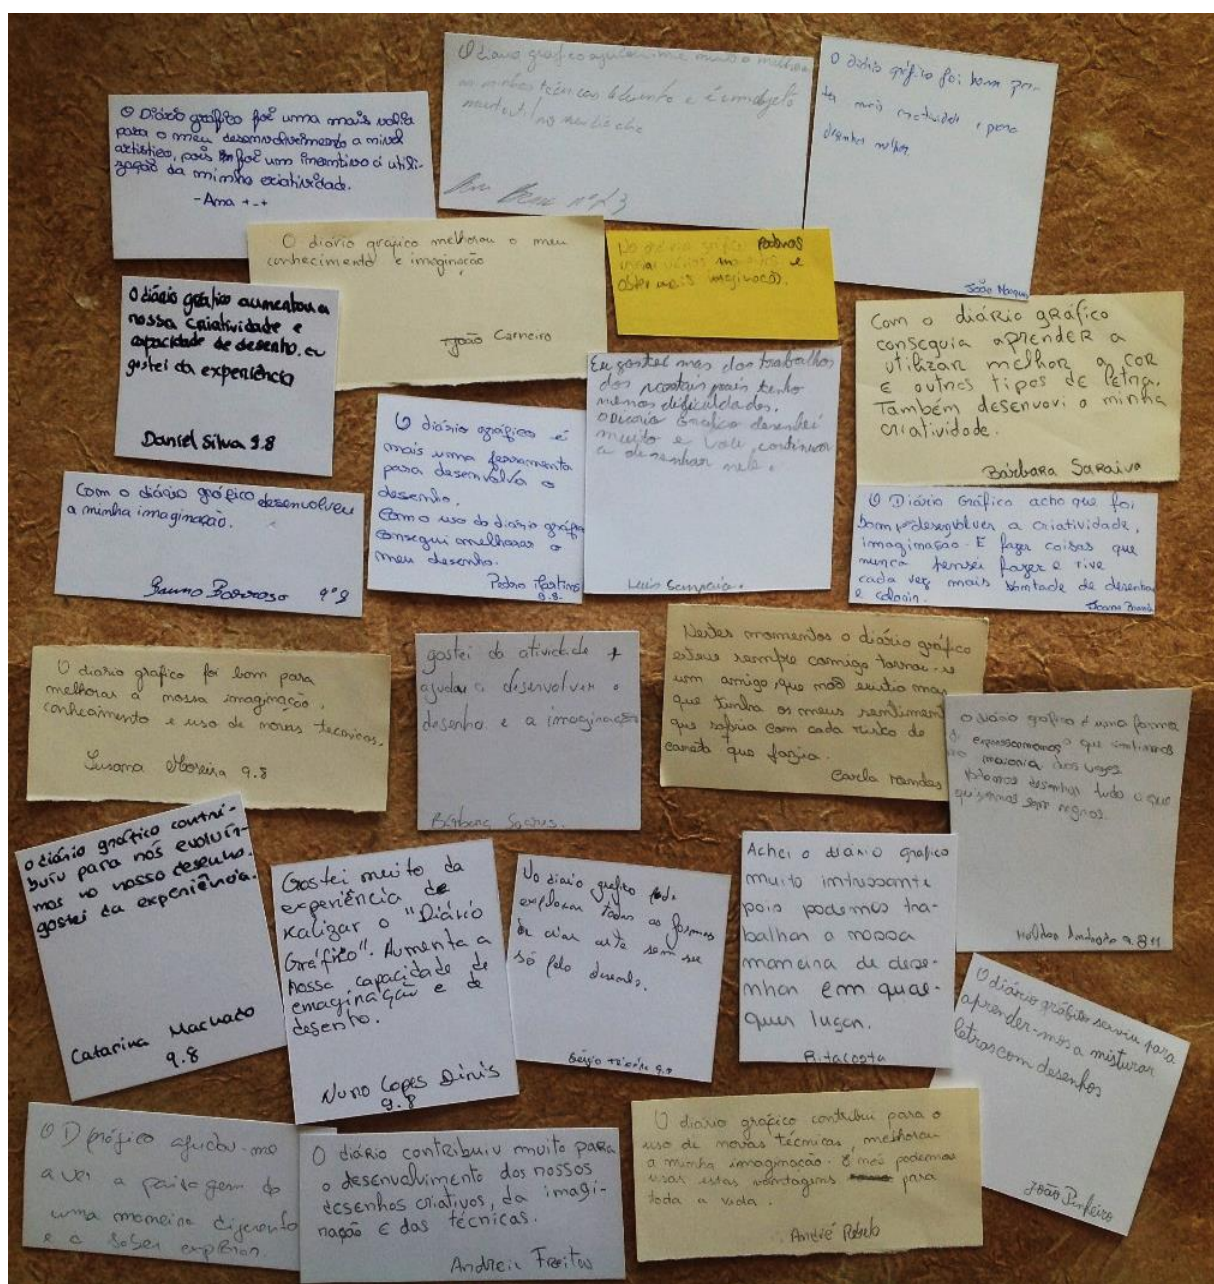 O Diário gráfico foi uma mais valia
para o meu desenvolvimento a nível
artístico, pois foi um incentivo à utili-
zação da minha criatividade.
-Ana +-+
O diário gráfico ajudou-me muito a melhorar
as minhas técnicas de desenho e é um objeto
nº 23
O diário gráfico foi bom pa-
ra mais e para
desenhar melhor.
João
O diário gráfico melhorou o meu
conhecimento e imaginação
João Carneiro
No diário gráfico podemos
criar vários e
obter mais imaginação.
O diário gráfico aumentou a
nossa criatividade e
capacidade de desenho, eu
gostei da experiência
Daniel Silva 9.8
Com o diário gráfico
conseguia aprender a
utilizar melhor a cor
e outros tipos de letra.
Também desenvovi a minha
criatividade.
Bárbara Saraiva
Eu gostei mas dos trabalhos
dos pais tenho
menos dificuldades.
O Diario Grafico desenhei
muito e vou continuar
a desenhar nele.
Luis
O diário gráfico é
mais uma ferramenta
para desenvolva o
desenho.
Com o uso do diario gráfico
consegui melhorar o
meu desenho.
Pedro Martins
9.8.
Com o diário gráfico desenvolveu
a minha imaginação.
Bruno Barroso 9º8
O Diário Gráfico acho que foi
bom p desenvolver a criatividade,
imaginação. E fazer coisas que
nunca pensei fazer e tive
cada vez mais vontade de desenhar
e colorir.
Joana
O diário gráfico foi bom para
melhorar a nossa imaginação,
conhecimento e uso de novas tecnicas.
Susana Moreira 9.8
gostei da atividade +
ajudou a desenvolver o
desenho e a imaginação
Bárbara Soares.
Nestes momentos o diário gráfico
esteve sempre comigo tornou-se
um amigo, que não mas
que tinha os meus sentimen
que sabia com cada risco de
caneta que fazia.
Carla
O diário gráfico é uma forma
de expressarmos o que sentimos
na maioria das vezes
podemos desenhar tudo o que
quisermos sem regras.
Andrade 9.8 11
O diário gráfico contri-
buiu para nós evoluír-
mos no nosso desenho.
gostei da experiência.
Catarina Machado
9.8
Gostei muito da
experiência de
realizar o "Diário
Gráfico". Aumenta a
nossa capacidade de
emaginação e de
desenho.
Nuno Lopes Dinis
9.8
No diario grafico pode
explorar todas as formas
de criar arte sem ser
só pelo desenho.
Sérgio 9.8
Achei o diário grafico
muito intrussante
pois podemos tra-
balhar a nossa
maneira de dese-
nhar em quas-
quer lugar.
Rita Costa
O diário gráfico serviu para
aprender-mos a misturar
letras com desenhos
João Pinheiro
O D gráfico ajudou-me
a ver a paisagem de
uma maneira diferente
e a saber explorar.
O diário contribuiu muito para
o desenvolvimento dos nossos
desenhos criativos, da imagi-
nação e das técnicas.
Andreia Freitas
O diário gráfico contribui para o
uso de novas técnicas, melhorou
a minha imaginação. E nós podermos
usar estas vantagens para
toda a vida.
André Rebelo